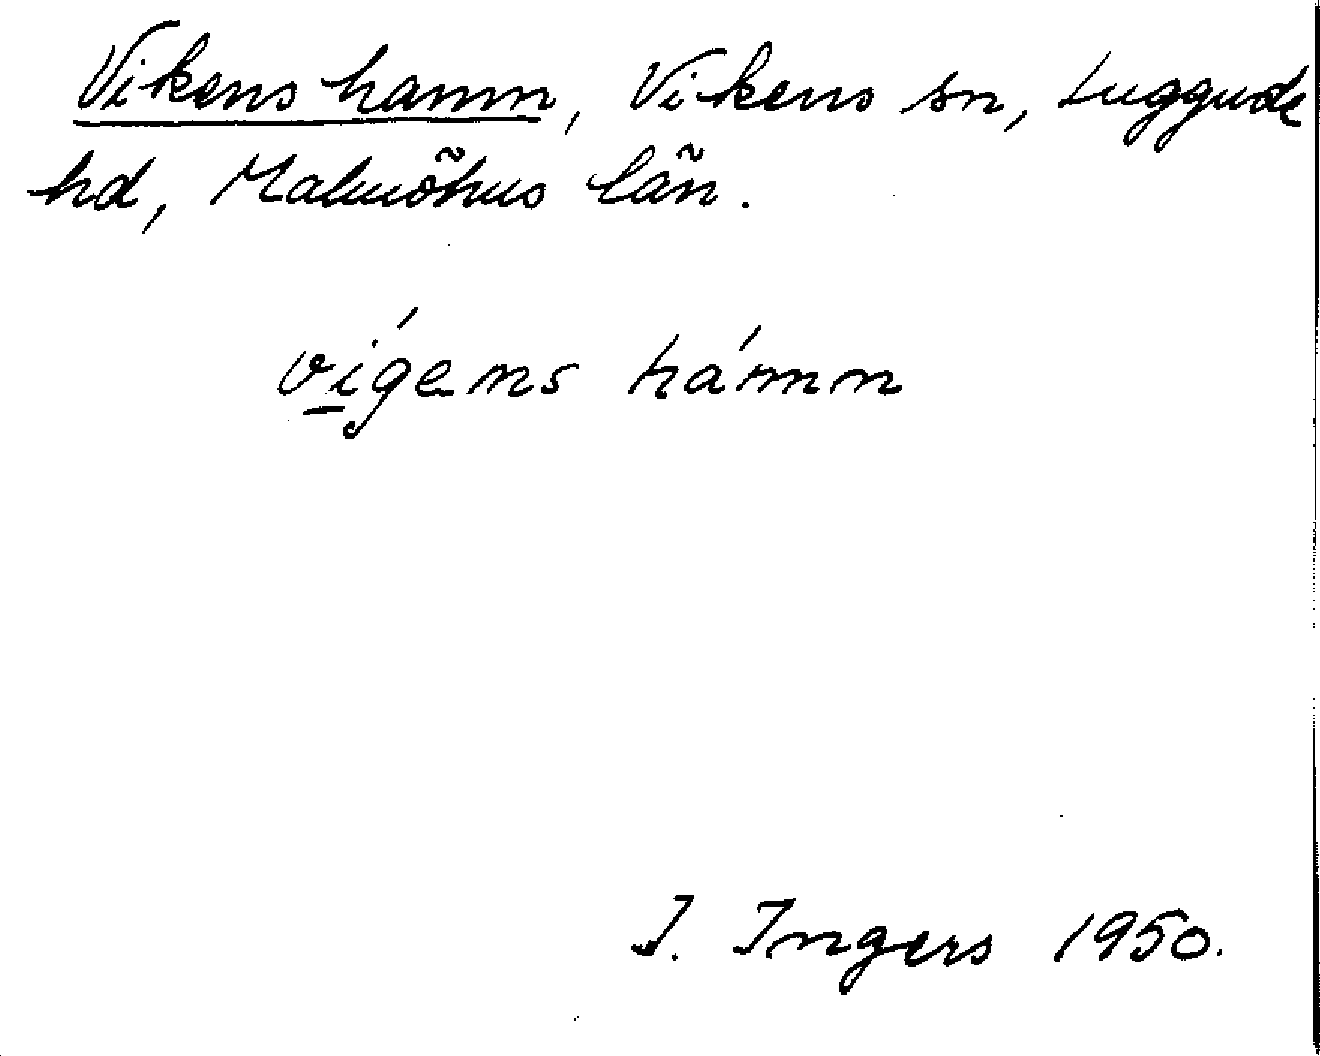 Vikens hamn, Vikens sn, Luggude
hd, Malmöhus län.
vígens hámn
I. Ingers 1950.